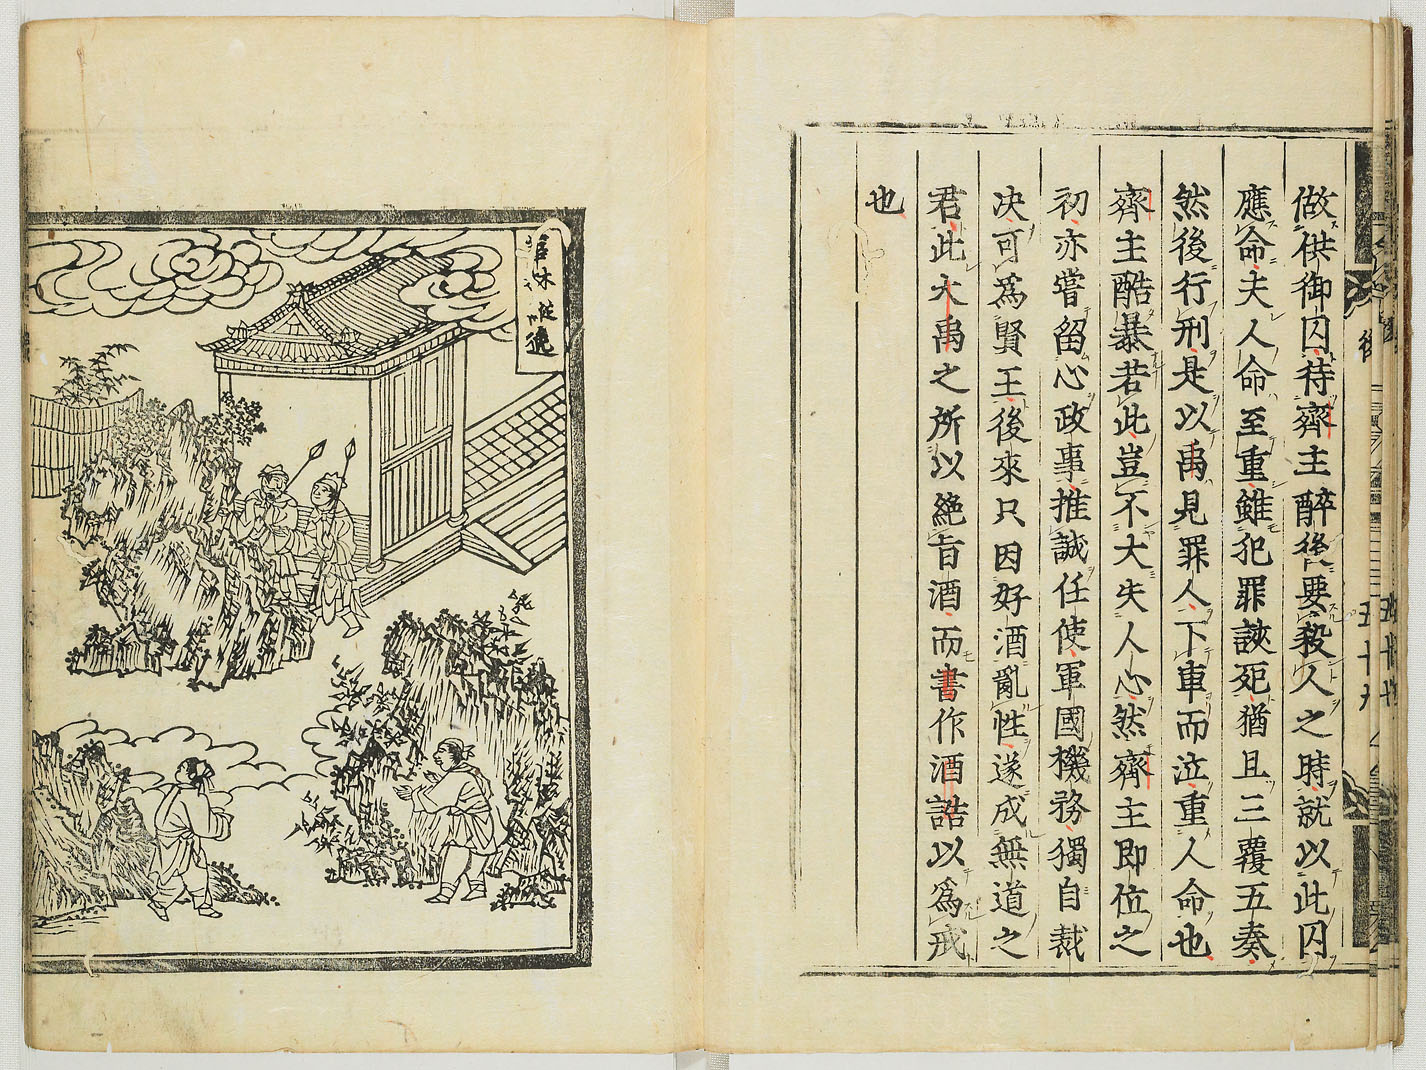 做供御囚待齊主醉後要殺人之時就以此囚
應命夫人命至重雖犯罪該死猶且三覆五奏
然後行刑是以禹見罪人下車而泣重人命也
齊主酷暴若此豈不大失人心然齊主即位之
初亦嘗留心政事推誠任使軍國機務獨自裁
决可爲賢王後來只因好酒亂性遂成無道之
君此大禹之所以絶旨酒而書作酒誥以爲戒
也